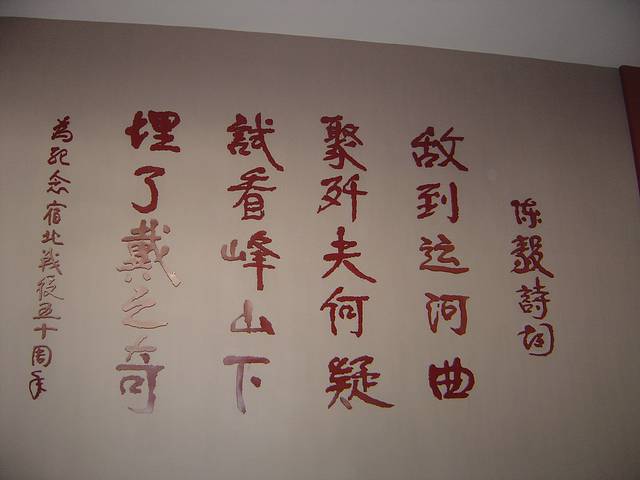 陈毅詩词
敌到运河曲
聚歼夫何疑
試看峰山下
埋了戴之奇
為纪念宿北战役五十周年